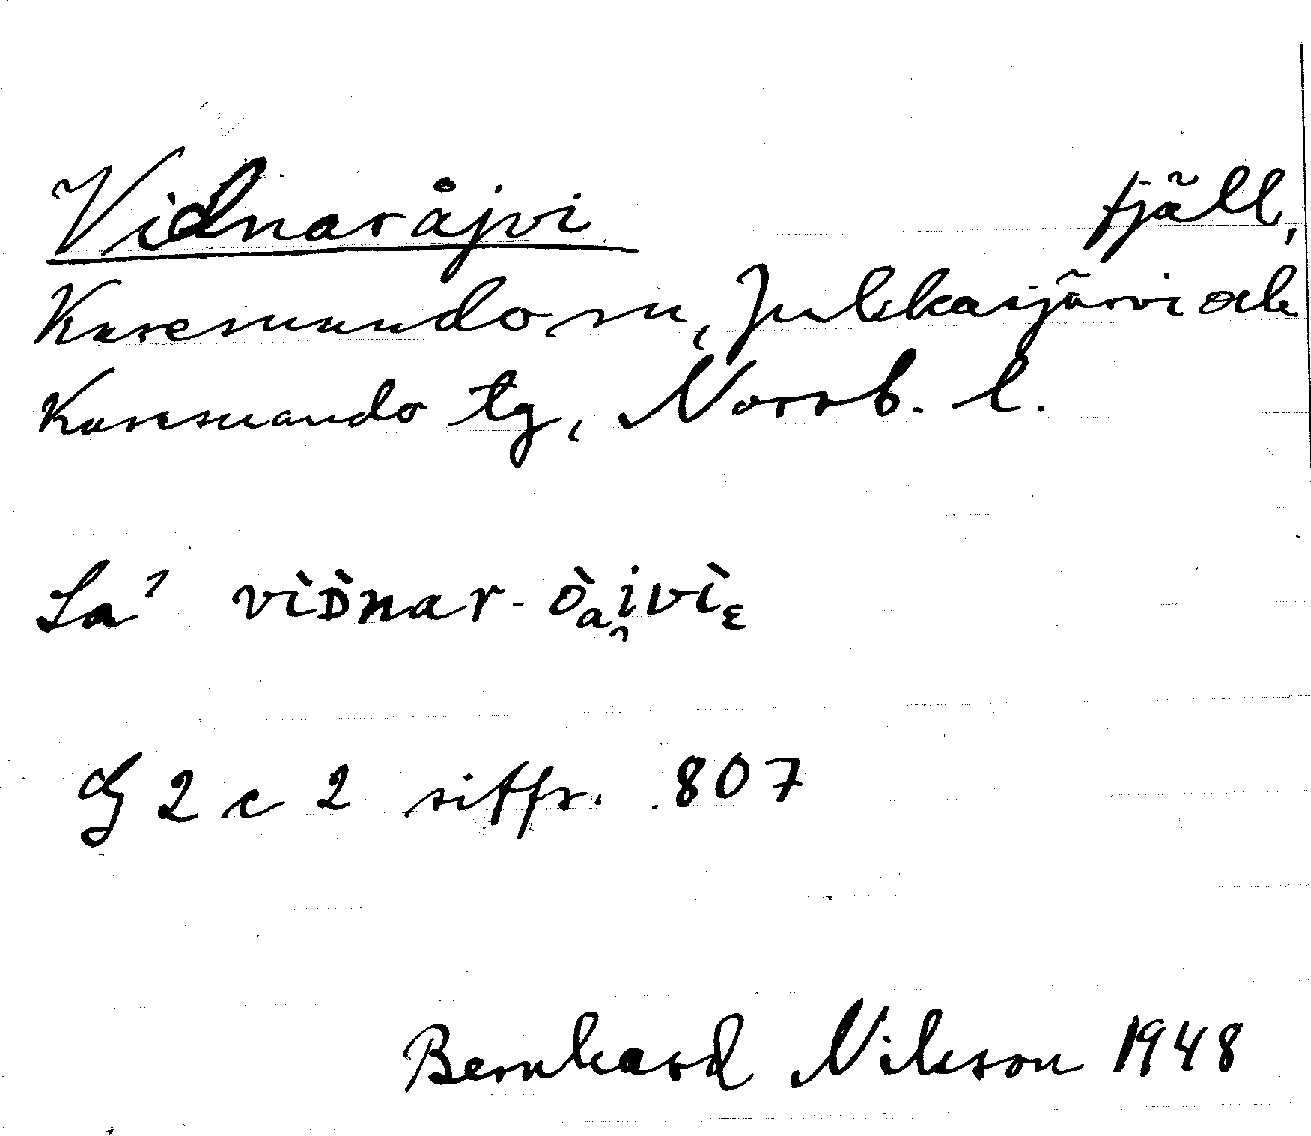 Vidnaråjvi fjäll,
Karesuando sn, Julkkasjärvi och
Karesuando tg, Norrb. l.
La' vìᴅ̀nar-òₐi̯vìε
G 2 c 2 siffr. 807
Bernhard Nilsson 1948